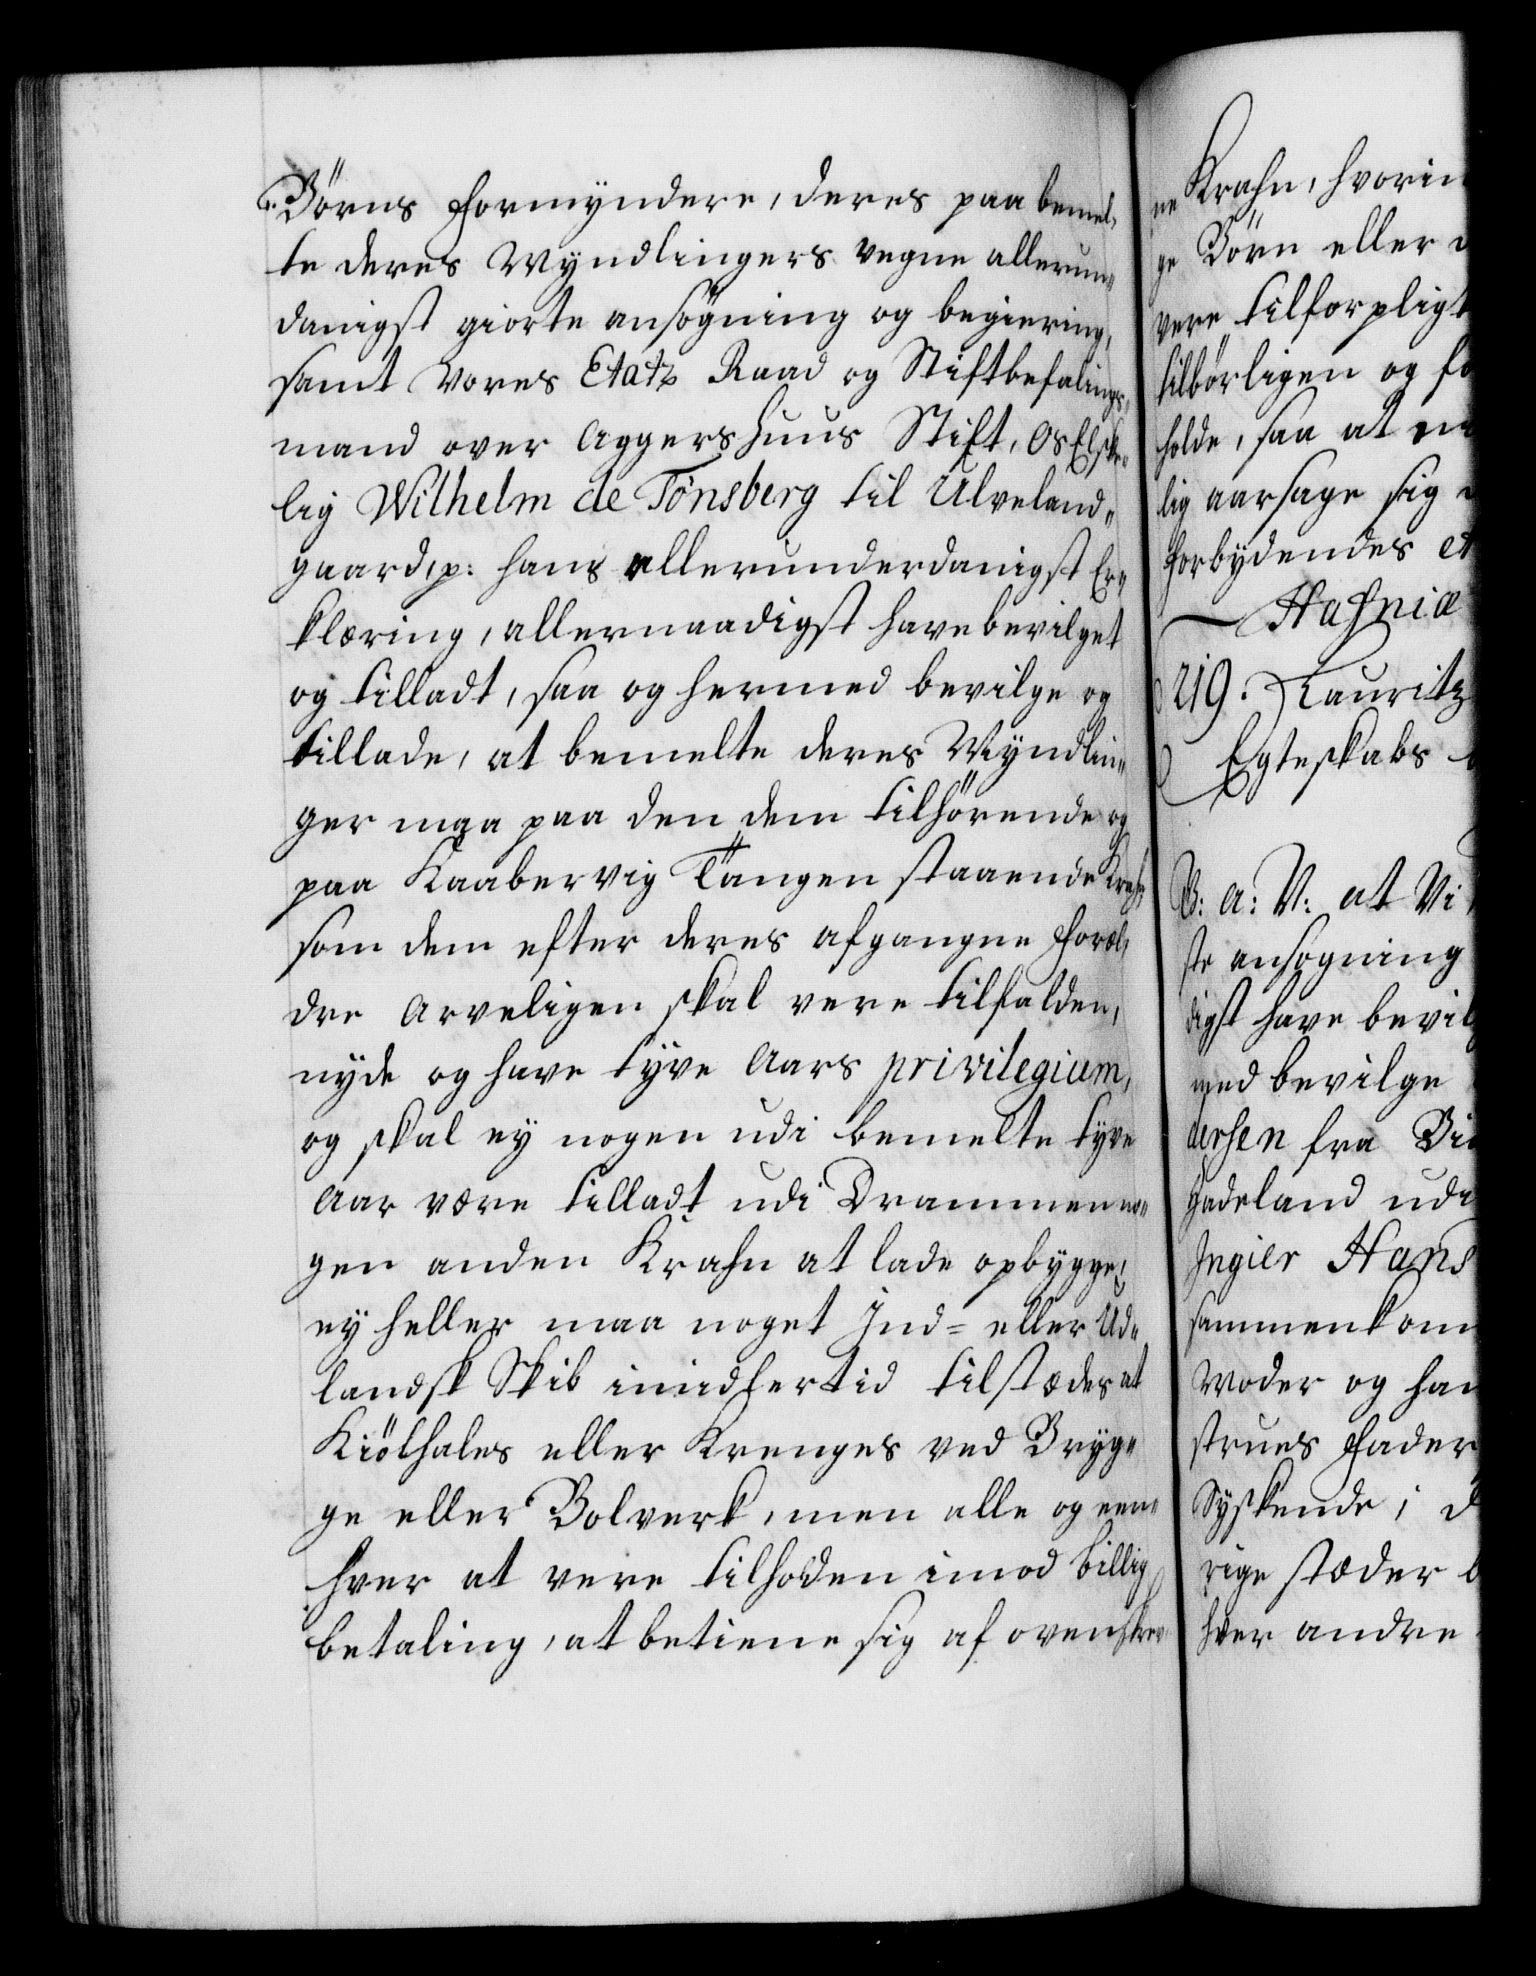 Börns Formyndere, deres paa bemel,
te deres Myndlingers vegne allerun„
danigst giorte ansögning og begiering,
samt Vores Etatz Raad og Stiftbefalings„
mand over Aggershuus Stift, Os Elske„
lig Wilhelm de Tönsberg til Ulveland„
gaard, p: hans allerunderdanigst Er„
klæring, allernaadigst have bevilget
og tilladt, saa og hermed bevilge og
tillade, at bemelte deres Myndlin„
ger maa paa den dem tilhörende og
paa Kaabervig Tangen staaende Krahn,
som dem efter deres afgangne Foræl,
dre Arveligen skal vere tilfalden,
nyde og have tyve Aars privilegium,
og skal ey nogen udi bemelte tyve
Aar være tilladt udi Drammen no„
gen anden Krahn at lade opbygge,
ey heller maa noget Ind= eller Ud„
landsk Skib imidlertid tilstædes at
Kiölhales eller Krenges ved Bryg„
ge eller Bolverk, men alle og een„
hver at vere tilholden imod billig
betaling, at betiene sig af ovenskrev
ne Krahn, hvorin
ge Börn eller
vere tilforpligt
tilbörligen og fo
holde, saa at
lig aarsage sig
Forbydendes et
Hafniæ
219. Lauritz
Egteskabs
B: A: V: at Vi
ste ansögning
digst have bevil
med bevilge
dersen fra
Hadeland udi
Ingier Hans
sammenkom
Moder og han
strues Fader
Syskende;
rige stæder
hver andre